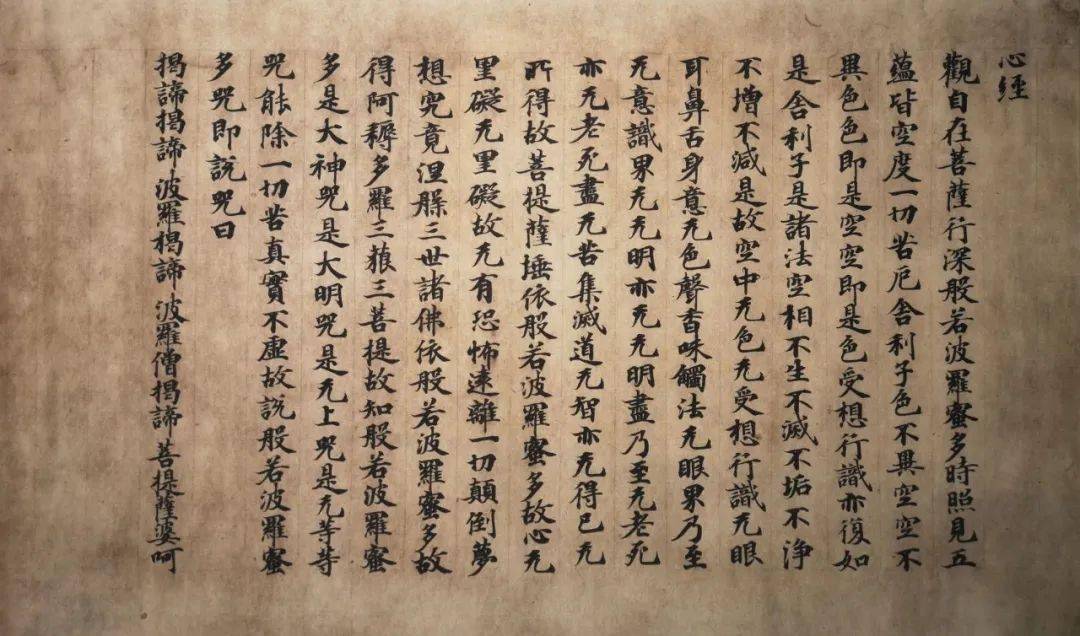 心經
觀自在菩薩行深般若波羅蜜多時照見五
蘊皆空度一切苦厄舍利子色不異空空不
異色色即是空空即是色受想行識亦復如
是舍利子是諸法空相不生不滅不垢不浄
不增不減是故空中无色无受想行識无眼
耳鼻舌身意无色聲香味觸法无眼界乃至
无意識界无无明亦无无明盡乃至无老死
亦无老死盡无苦集滅道无智亦无得已无
所得故菩提薩埵依般若波羅蜜多故心无
里礙无里礙故无有恐怖遠離一切顛倒夢
想究竟涅槃三世諸佛依般若波羅蜜多故
得阿耨多羅三藐三菩提故知般若波羅蜜
多是大神咒是大明咒是无上咒是无等等
咒能除一切苦真實不虛故說般若波羅蜜
多咒即說咒曰
揭諦揭諦 波羅揭諦 波羅僧揭諦 菩提薩婆呵